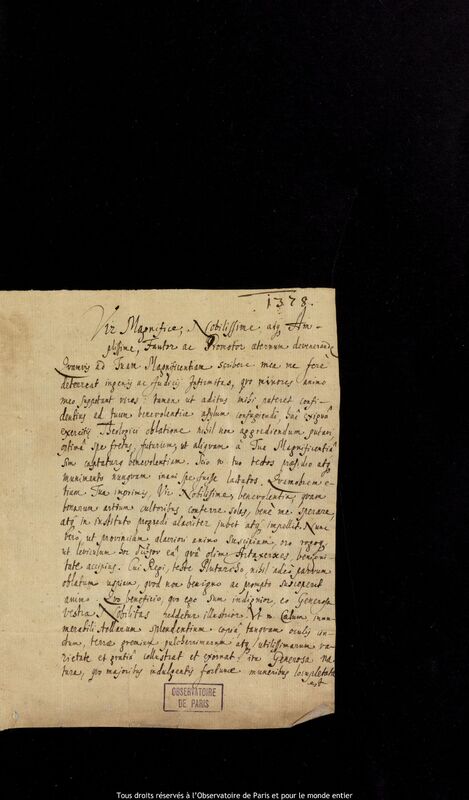 1378.
Vir Magnifice, Nobilissime, atq; Am-
plissime, Fautor ac Promotor æternum devenerande
Quamvis ad Tuam Magnificentiam scribere mea me fere
deterreat ingenij ac judicij
meo suppetant vires tamen ut aditus mihi pateret confi-
dentius ad tuum benevolentiæ asylum confugiendi
exercitij Theologici oblatione nihil non aggrediendum putavi
spe fretus, futurum, ut aliquam a Tua Magnificentia
sim captaturus benevolentiam. Scio n. tuo tectos præsidio atq;
munimento nunquam inani spe fuisse lactatos. Quamobrem e-
tiam Tua inprimis, Vir Nobilissime, benevolentia, quam
bonarum artium cultoribus conferre soles, bene me sperare,
atq; in instituto progredi alacriter jubet atq; impellit. Nunc
vero, ut provinciam alacriori animo suscipiam, oro rogoq;
ut leviculum hoc olim Artaxerxes
accipias. Cui Regi, teste Plutarcho, nihil adeo parvum
oblatum uspiam, quod non benigno ac prompto susceperit
animo. Quo beneficio, quo ego sum indignior, eo Generosa
vestra Nobilitas reddetur illustrior. Ut n. Cælum innu-
merabili stellarum splendentium copia, tanquam oculis
terræ gremium pulcherrimarum atq; utilissimarum va-
rietate et gratia collustrat et exornat: ita Generosa na-
tura, quo majoribus indulgentis fortunæ muneribus locupletata
est
OBSERVATOIRE
DE PARIS
Tous droits réservés à l'Observatoire de Paris et pour le monde entier